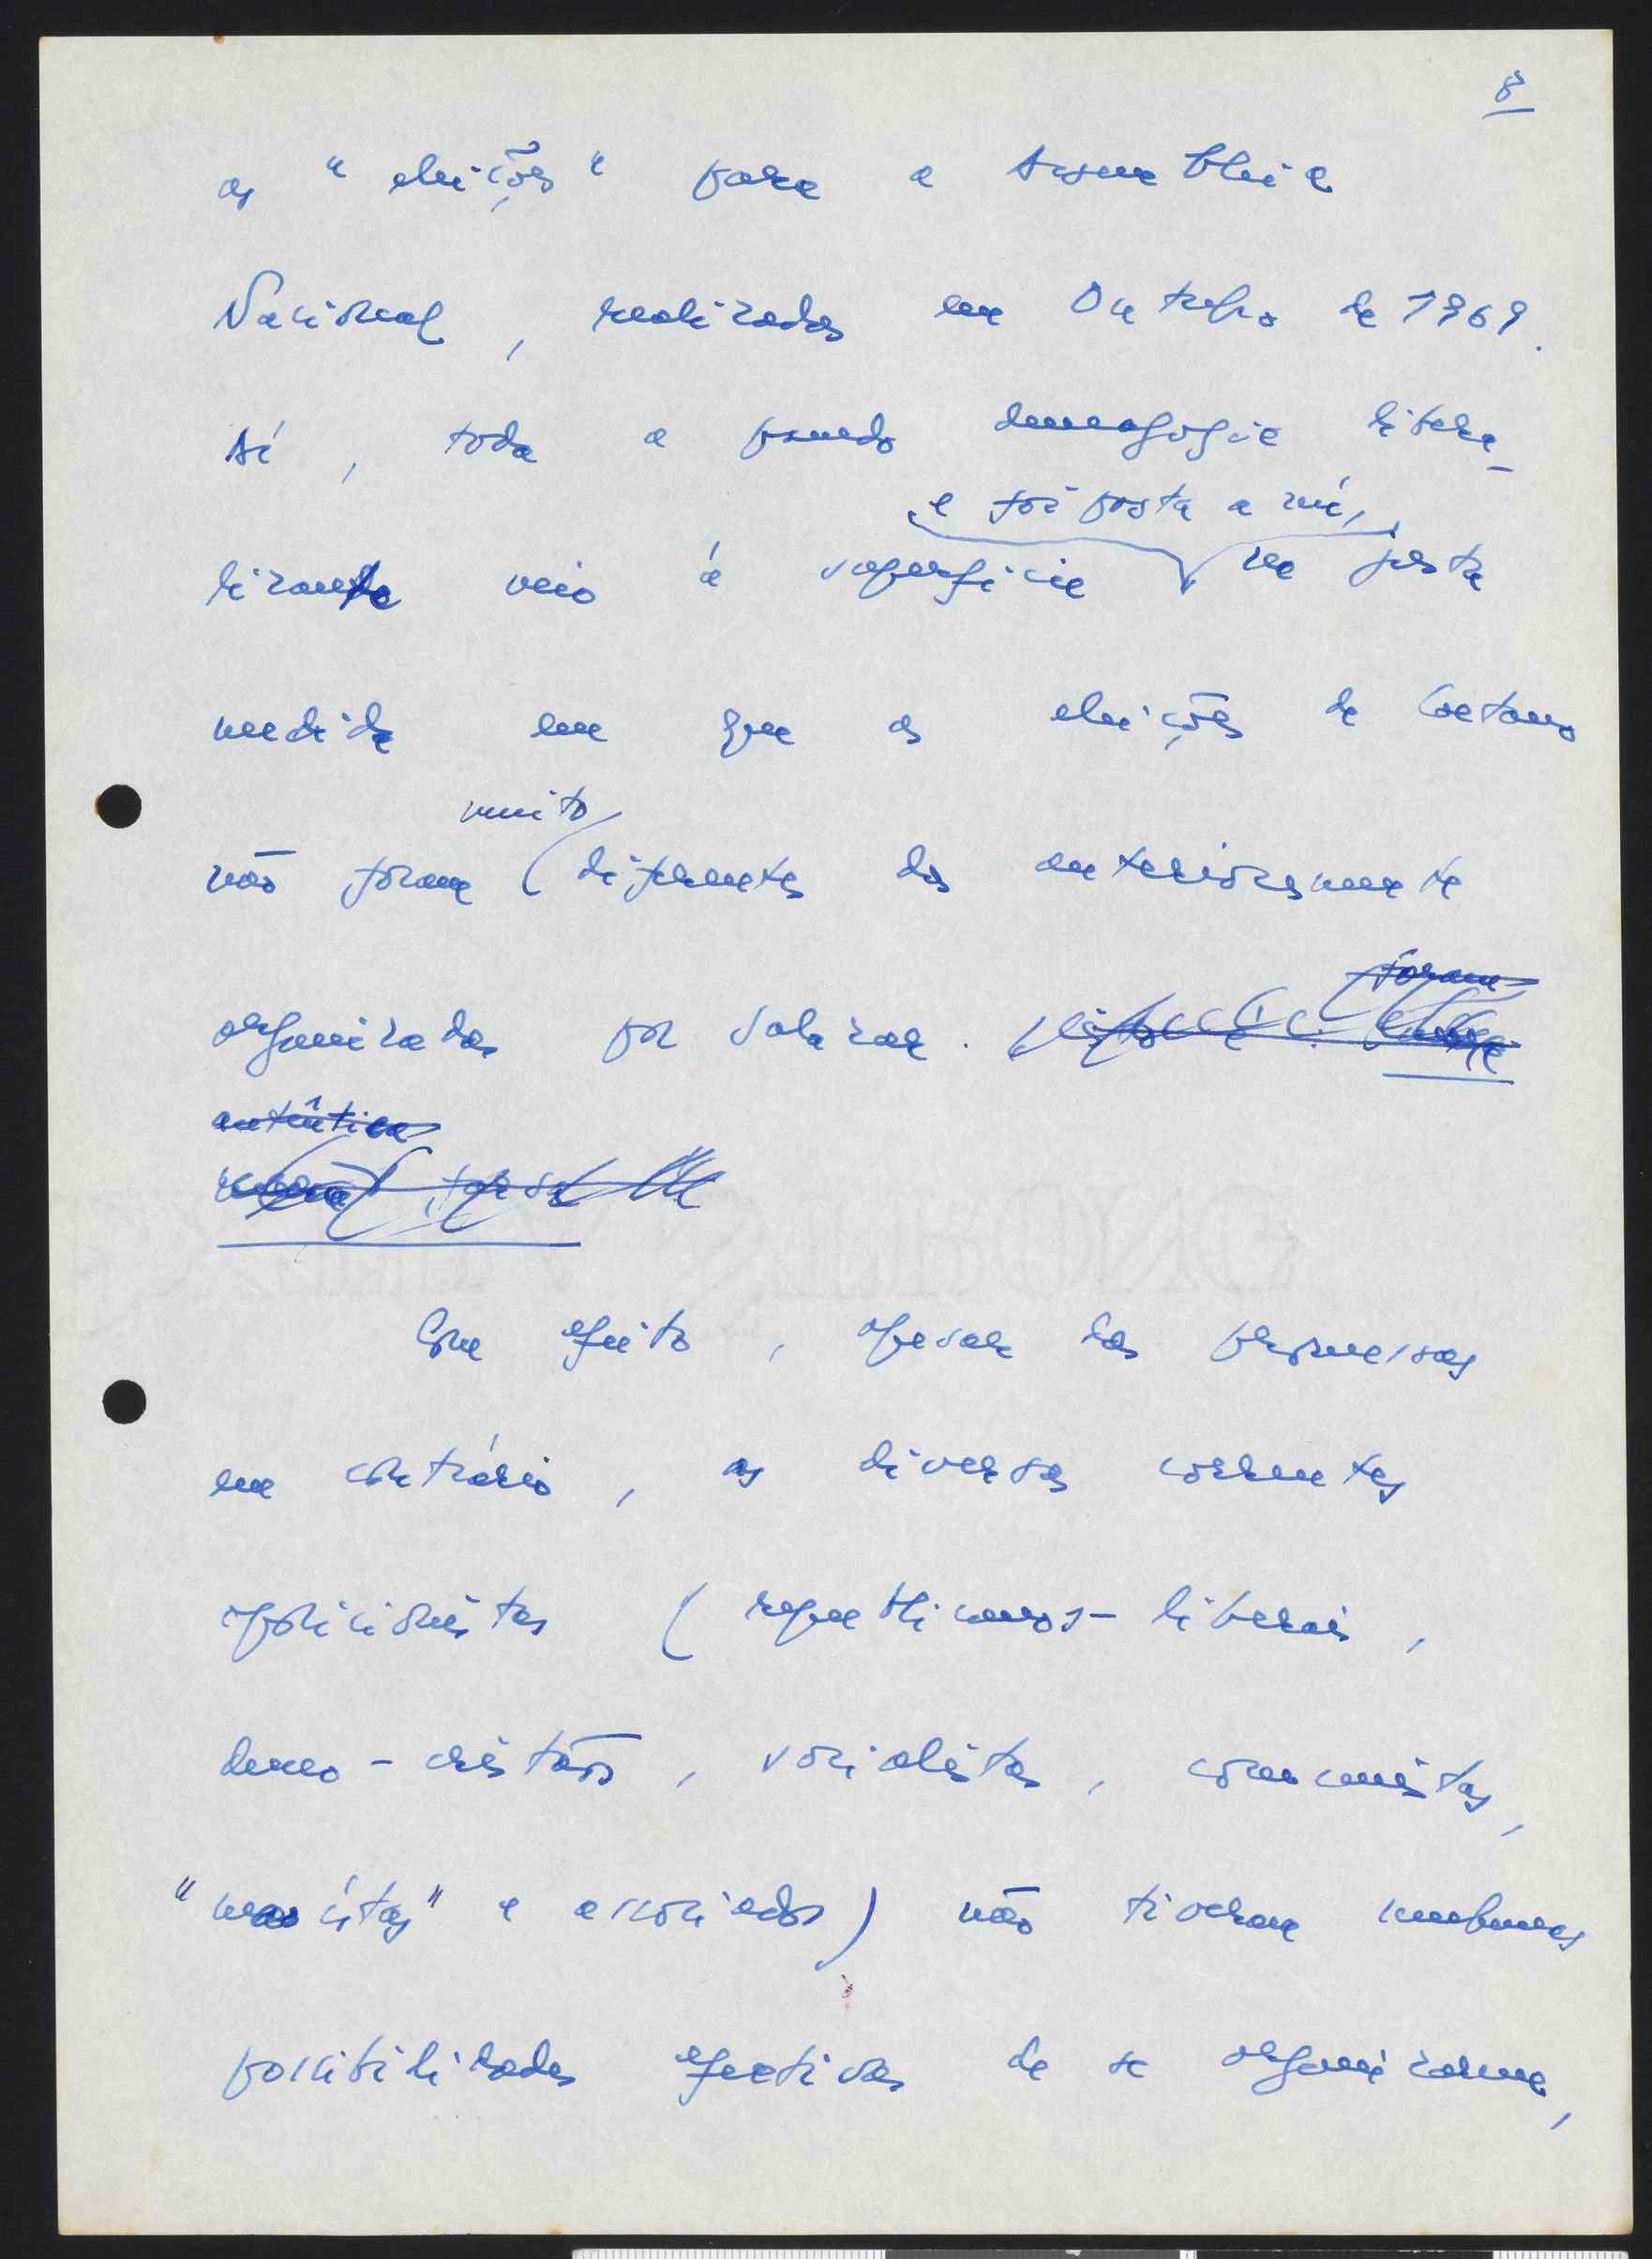 8
as "eleições" para a Assembleia
Nacional, realizadas em Outubro de 1969.
Aí, toda a pseudo demagogia libera-
e foi posta a nú,
lizante veio à superfície na justa
medida em que as eleições de Caetano
muito
não foram diferentes das anteriormente
foram
organizadas por Salazar.
autêntica
Com efeito, apesar das promessas
em contrário, as diversas correntes
oposicionistas (republicanos-liberais,
demo-cristãos, socialistas, comunistas,
"maoístas" e associados) não tiveram nenhumas
possibilidades efectivas de se organizarem,